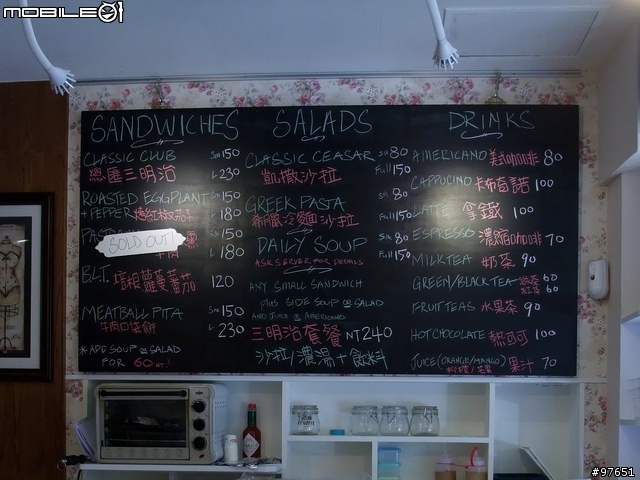 MOBILE01
SANDWICHES
CLASSIC CLUB Sm 150
總匯三明治 L 230
ROASTED EGGPLANT Sm 150
+ PEPPER L 180
SOLD OUT! 150
牛肉 L 180
B.L.T. 培根蘿蔓蕃茄 120
MEATBALL PITA Sm 150
牛肉口袋餅 L 230
* ADD SOUP or SALAD
FOR 60
SALADS
CLASSIC CEASAR Sm 80
凱撒沙拉 Full 150
GREEK PASTA Sm 80
希臘冷麵沙拉 Full 150
DAILY SOUP Sm 80
ASK SERVER FOR DETAILS Full 150
ANY SMALL SANDWICH
PLUS SIDE SOUP or SALAD
AND JUICE or AMERICANO
三明治套餐 NT 240
沙拉/濃湯+飲料
DRINKS
AMERICANO 美式咖啡 80
CAPPUCINO 卡布奇諾 100
LATTE 拿鐵 100
ESPRESSO 濃縮咖啡 70
MILK TEA 奶茶 90
GREEN/BLACK TEA 綠茶 60
紅茶 60
FRUIT TEAS 水果茶 90
HOT CHOCOLATE 熱可可 100
JUICE (ORANGE/MANGO) 果汁 70
柳橙/芒果
#97651